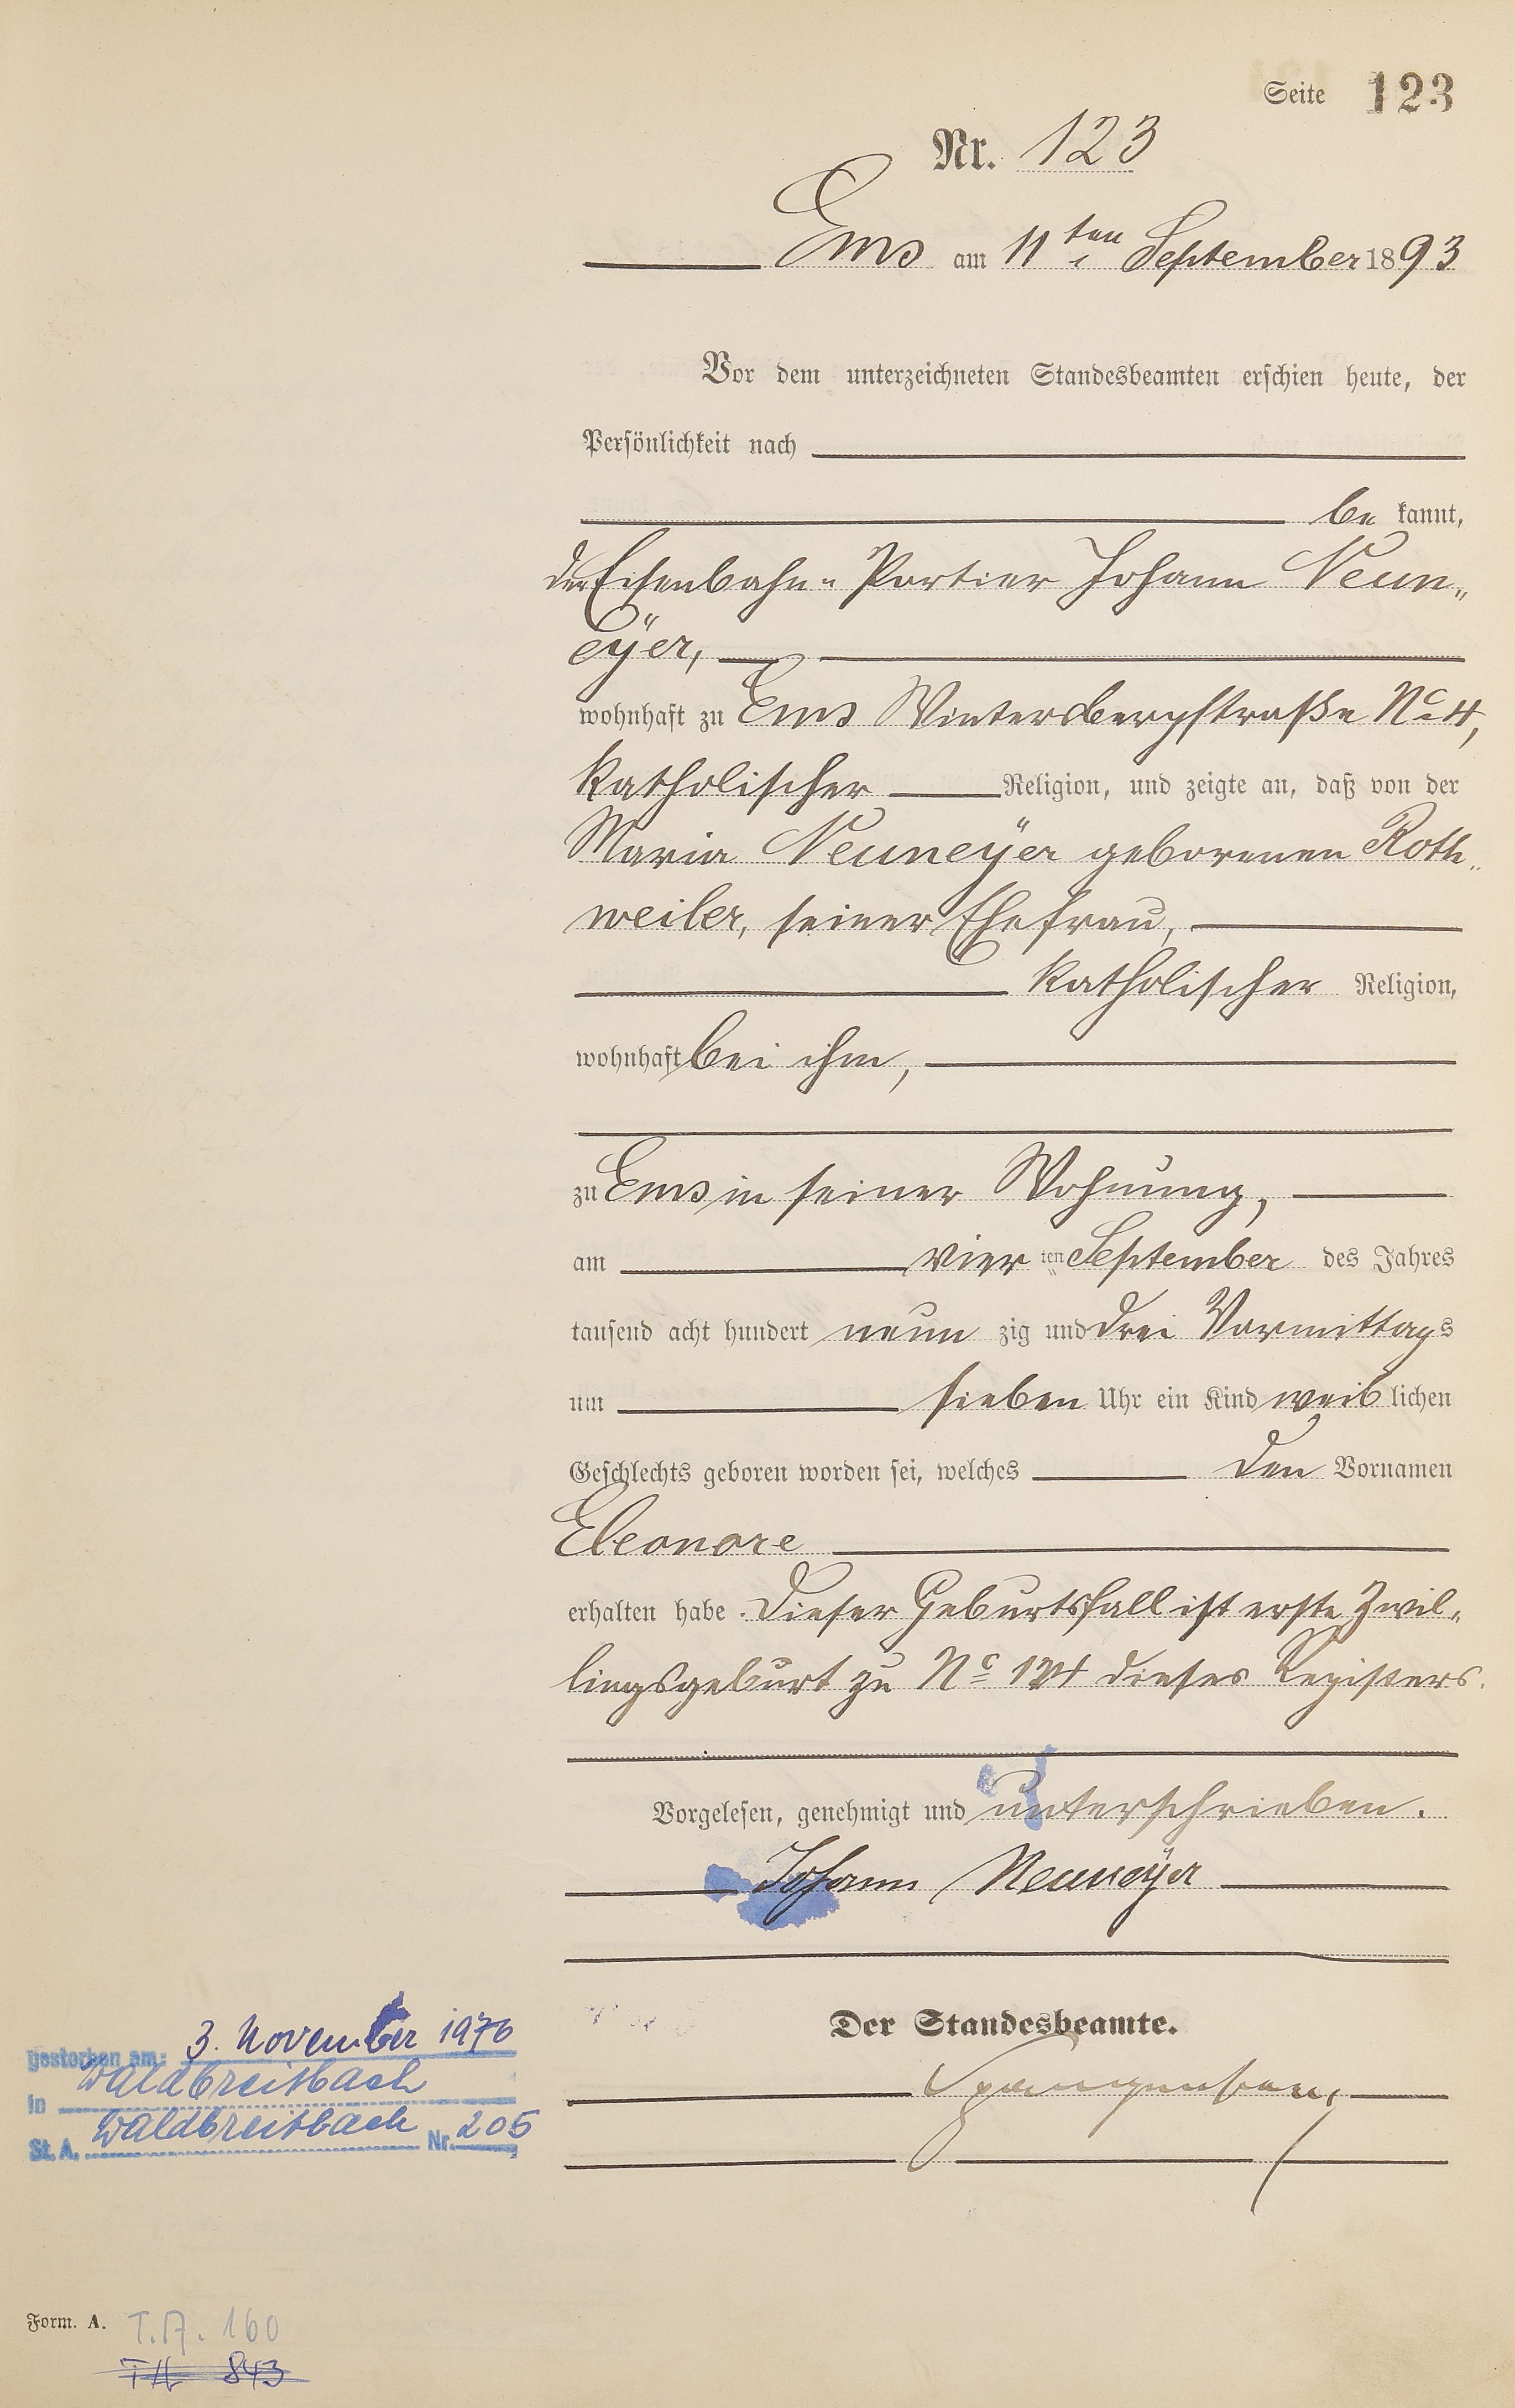 Seite 123
Nr. 123
Ems am 11ten September 1893
Vor dem unterzeichneten Standesbeamten erschien heute, der
Persönlichkeit nach
be kannt,
der Eisenbahn-Portier Johann Neun-
eÿer,
wohnhaft zu Ems Wintersbergstraße No 4,
katholischer Religion, und zeigte an, daß von der
Maria Neuneÿer geborenen Roth-
weiler, seiner Ehefrau,
katholischer Religion,
wohnhaft bei ihm,
zu Ems in seiner Wohnung,
am vier ten September des Jahres
tausend acht hundert neun zig und drei Vormittags
um sieben Uhr ein Kind weib lichen
Geschlechts geboren worden sei, welches den Vornamen
Eleonore
erhalten habe. Dieser Geburtsfall ist erste Zwil-
lingsgeburt zu No 124 dieses Registers.
Vorgelesen, genehmigt und unterschrieben.
Johann Neuneÿer
Der Standesbeamte.
gestorben am: 3. November 1976
in Waldbreitbach
St. A. Waldbreitbach Nr. 205
Form. A. T.A. 160
TA 843